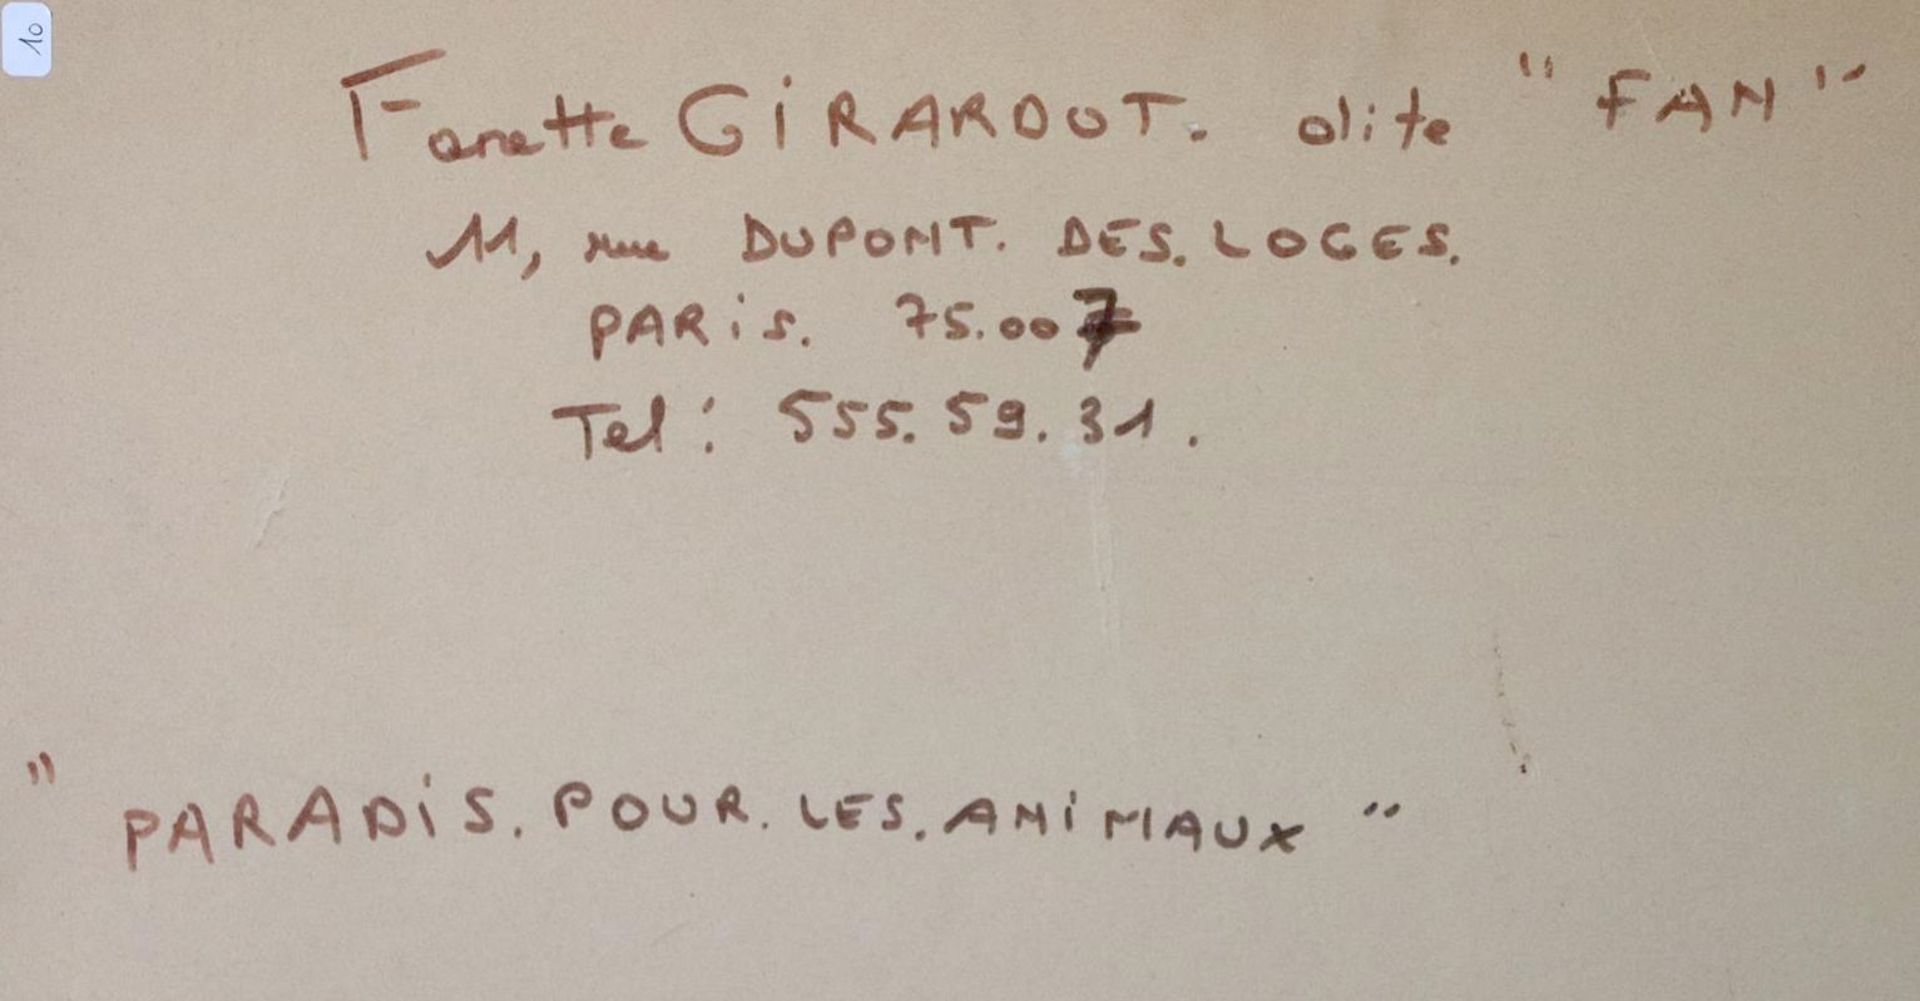 10
Fanette GiRARDOT. dite "FAN"
11, rue DUPONT. DES. LOGES.
PARiS. 75.007
Tel: 555.59.31.
"PARADiS. POUR. LES. ANiMAUX"